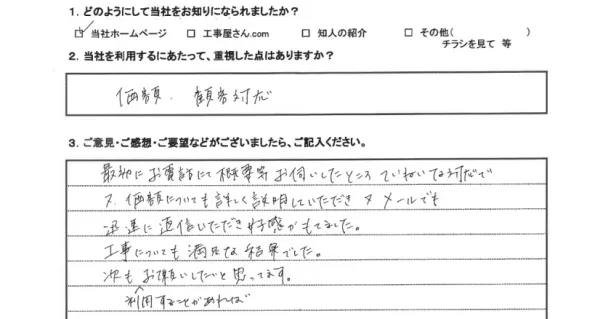 1. どのようにして当社をお知りになられましたか？
☑ 当社ホームページ □ 工事屋さん.com □ 知人の紹介 □ その他( )
チラシを見て 等
2. 当社を利用するにあたって、重視した点はありますか？
価額、顧客対応
3. ご意見・ご感想・ご要望などがございましたら、ご記入ください。
最初にお電話にて概要等お伺いしたところ ていねいな対応で
又、価額についても詳しく説明していただき 又 メールでも
迅速に返信いただき好感がもてました。
工事についても満足な結果でした。
次もお願いしたいと思ってます。
利用することがあれば